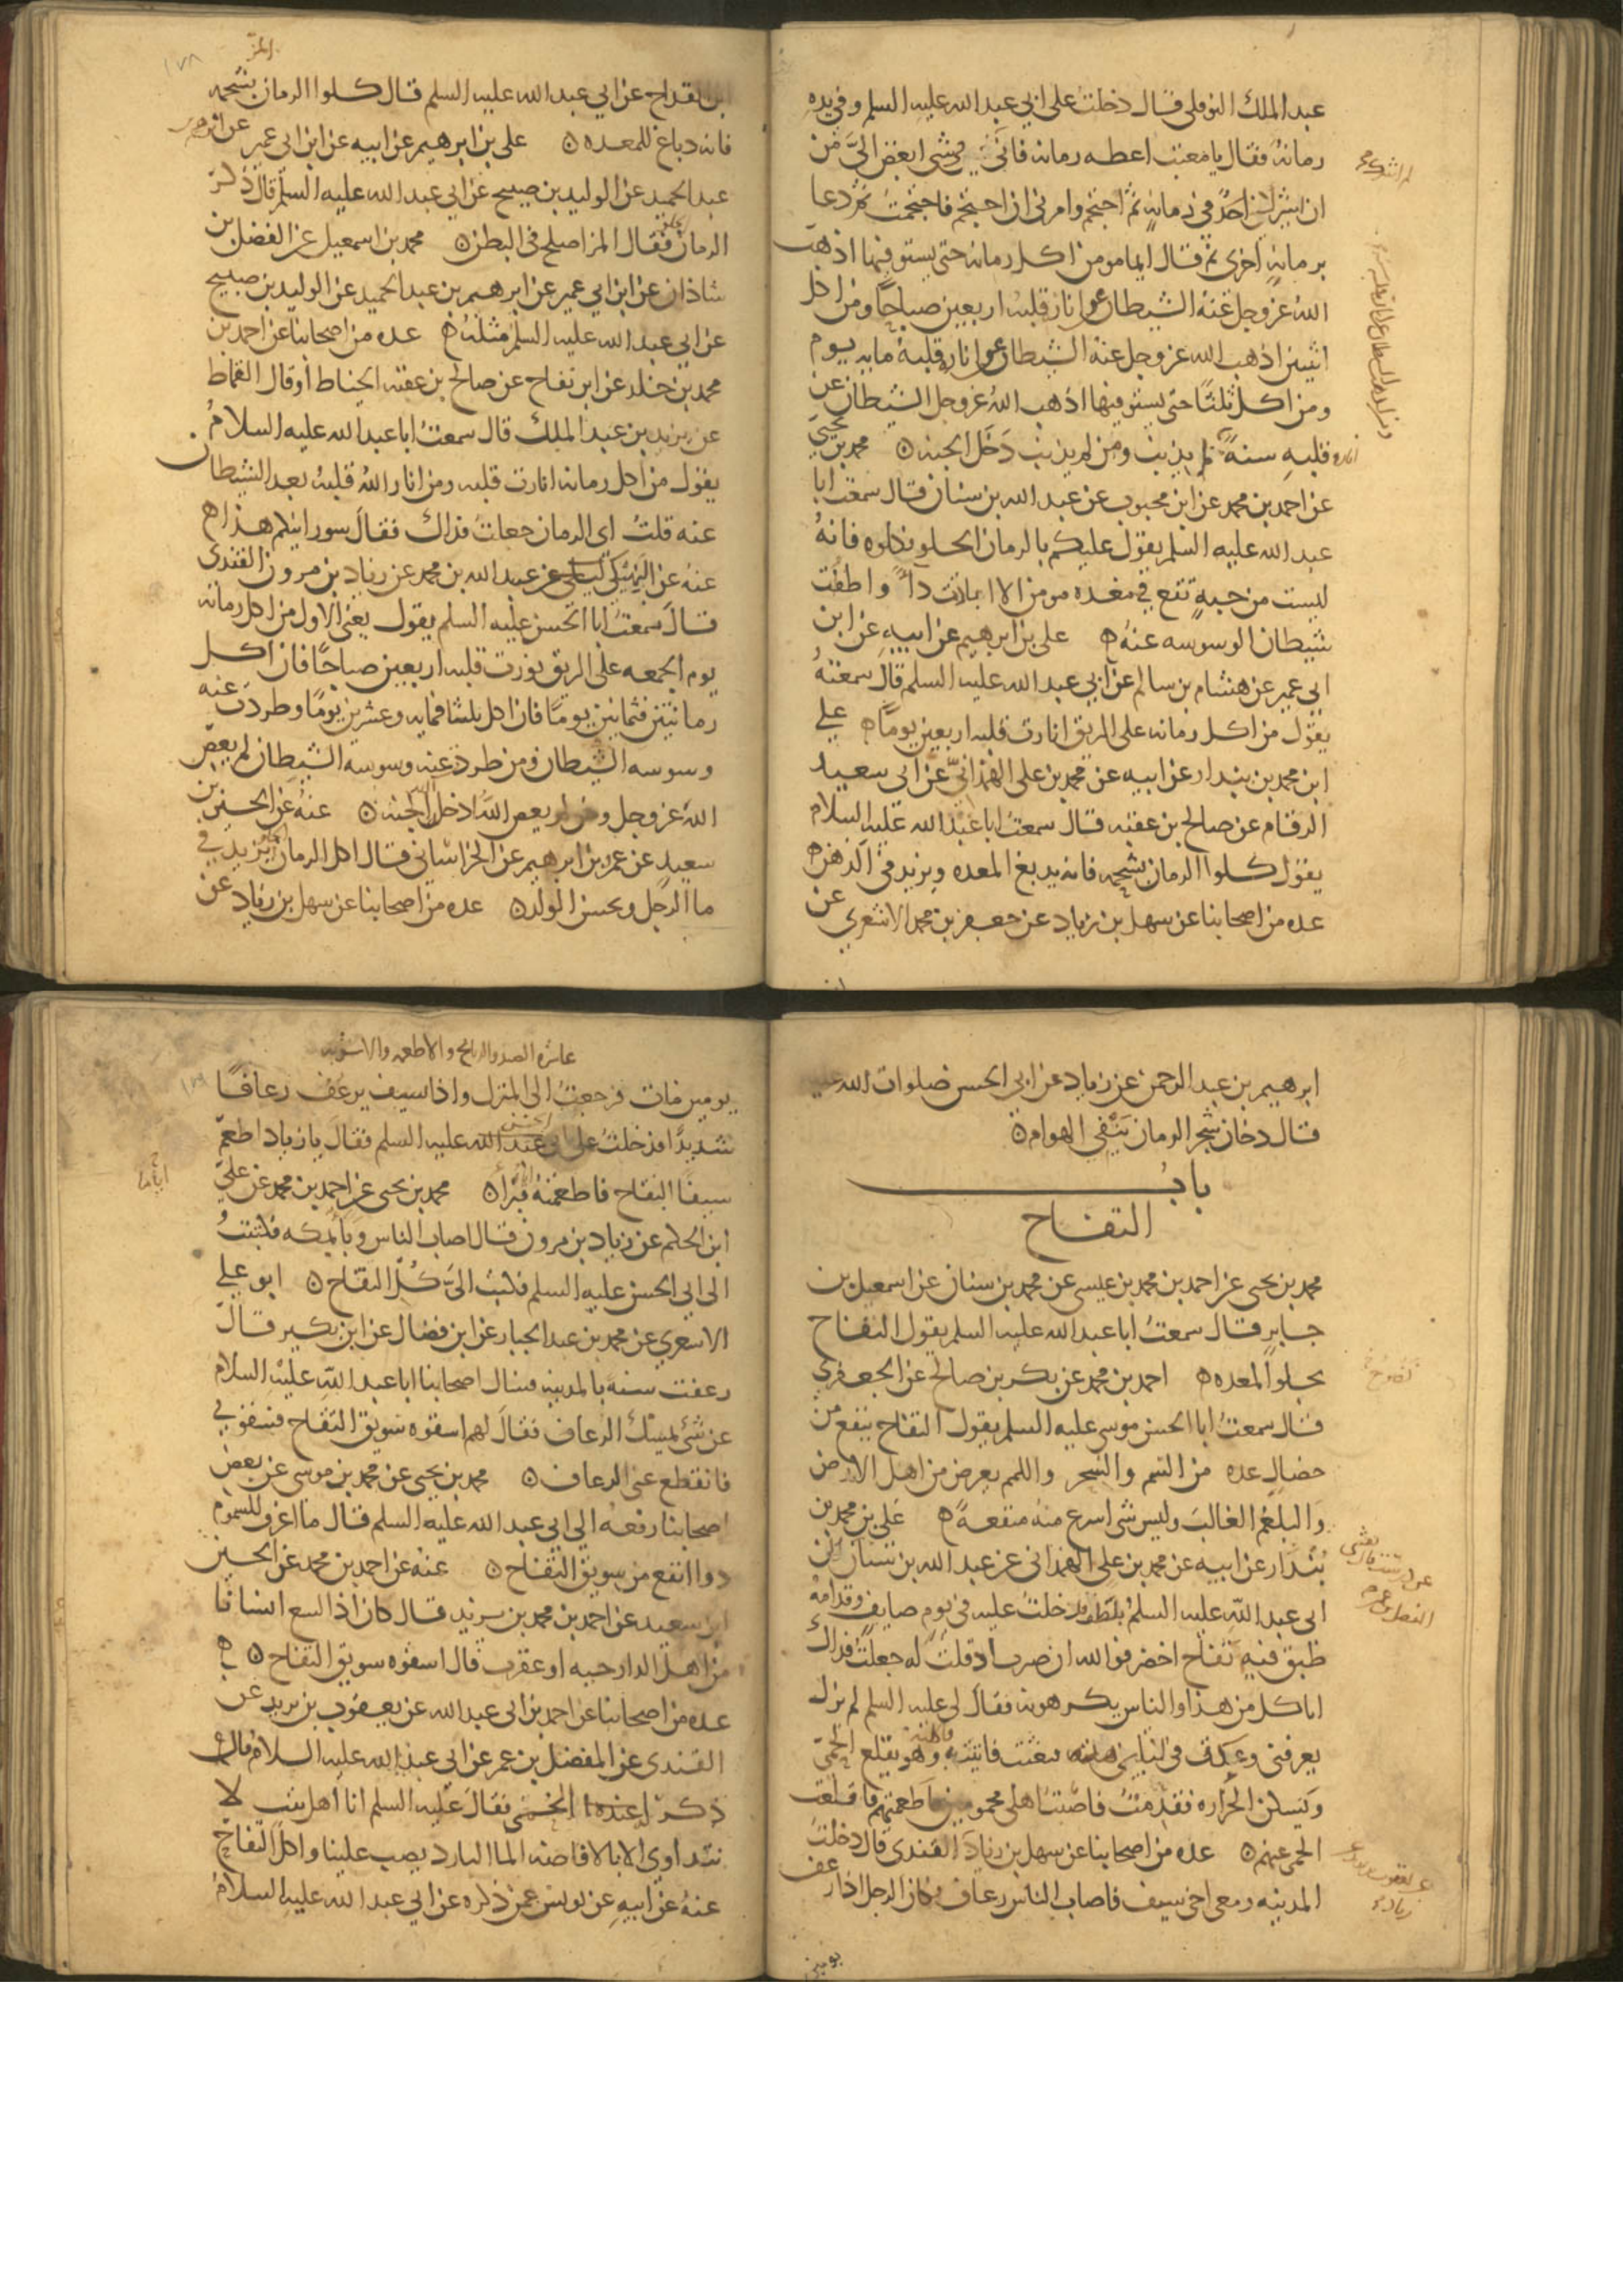 عبد الملك النوفلي قال دخلت على ابي عبد الله عليه السلم وفي يده
رمانة فقال يا معتب اعطه رمانه فاني شي ابغض الي من
ان اشرك احد في رمانه ثم احتجم وامرني ان احتجم فاحتجمت ثم دعا
برمانة اخرى ثم قال ايما مومن اكل رمانه حتى يستوفيها اذهب
الله عز وجل عنه الشيطان عن انارة قلبه اربعين صباحا ومن اكل
اثنين اذهب الله عز وجل عنه الشيطان عن انارة قلبه مايه يوم
ومن اكل ثلثا حتى يستوفيها اذهب الله عز وجل الشيطان عن
انارة قلبه سنة لم يذنب ومن لم يذنب دخل الجنه محمد بن يحيى
عن احمد بن محمد عن ابن محبوب عن عبد الله بن سنان قال سمعت ابا
عبد الله عليه السلم يقول عليكم بالرمان الحلو فكلوه فانه
ليست من حبة تقع في معده مومن الا ابادت داً واطفت
شيطان الوسوسه عنه علي بن ابرهيم عن ابيه عن ابن
ابي عمير عن هشام بن سالم عن ابي عبد الله عليه السلم قال سمعته
يقول من اكل رمانه على الريق انارت قلبه اربعين يوما علي
ابن محمد بن بندار عن ابيه عن محمد بن علي الهمذاني عن ابي سعيد
الرقام عن صالح بن عقبه قال سمعت ابا عبد الله عليه السلام
يقول كلوا الرمان بشحمه فانه يدبغ المعده ويزيد في الذهن
عده من اصحابنا عن سهل بن زياد عن جعفر بن محمد الاشعري عن
ابن القداح عن ابي عبد الله عليه السلم قال كلوا الرمان بشحمه
فانه دباغ للمعده علي بن ابرهيم عن ابيه عن ابن ابي عمير عن ابرهيم بن
عبد الحميد عن الوليد بن صبيح عن ابي عبد الله عليه السلم قال ذكر
الرمان فقال المز اصلح في البطن محمد بن اسمعيل عن الفضل بن
شاذان عن ابن ابي عمير عن ابرهيم بن عبد الحميد عن الوليد بن صبيح
عن ابي عبد الله عليه السلم مثله عده من اصحابنا عن احمد بن
محمد بن خلد عن ابن بقاح عن صالح بن عقبه الخياط او قال القماط
عن يزيد بن عبد الملك قال سمعت ابا عبد الله عليه السلام
يقول من اكل رمانه انارت قلبه ومن انار الله قلبه بعد الشيطان
عنه قلت اي الرمان جعلت فداك فقال سورانيكم هذا
عنه عن النهيكي عن عبيد الله بن محمد عن زياد بن مروان القندي
قال سمعت ابا الحسن عليه السلم يقول يعني الاول من اكل رمانه
يوم الجمعه على الريق نورت قلبه اربعين صباحا فان اكل
رمانتين فثمانين يوما فان اكل ثلثا فمايه وعشرين يوما وطردت عنه
وسوسه الشيطان ومن طردت عنه وسوسه الشيطان لم يعص
الله عز وجل ومن لم يعص الله ادخله الله الجنه عنه عن الحسين بن
سعيد عن عمرو بن ابرهيم عن الخراساني قال اكل الرمان يزيد في
ما الرجل ويحسن الولد عده من اصحابنا عن سهل بن زياد عن
ابرهيم بن عبد الرحمن عن زياد عن ابي الحسن صلوات الله عليه
قال دخان شجر الرمان ينفي الهوام
باب
التفاح
محمد بن يحيى عن احمد بن محمد بن عيسى عن محمد بن سنان عن اسمعيل بن
جابر قال سمعت ابا عبد الله عليه السلم يقول التفاح
يجلوا المعده احمد بن محمد عن بكر بن صالح عن الجعفري
قال سمعت ابا الحسن موسى عليه السلم يقول التفاح ينفع من
خصال عده من السم والسحر واللمم يعرض من اهل الارض
والبلغم الغالب وليس شي اسرع منه منفعة علي بن محمد بن
بندار عن ابيه عن محمد بن علي الهمذاني عن عبد الله بن سنان
ابي عبد الله عليه السلم بلطف فدخلت عليه في يوم صايف وقدامه
طبق فيه تفاح اخضر فوالله ان صبرت ان قلت له جعلت فداك
اتاكل من هذا والناس يكرهونه فقال لي عليه السلم لم يزل
يعرفني وعكت في ليلتي هذه فبعثت فاتيت به وهو يقلع الحمى
ويسكن الحراره فقدمت فاصبت اهلي محمومين فاطعمتهم فاقلعت
الحمى عنهم عده من اصحابنا عن سهل بن زياد القندي قال دخلت
المدينه ومعي اخي سيف فاصاب الناس رعاف فكان الرجل اذا رعف
عاشره الصيد والذبايح والاطعمه والاشربه
يومين مات فرجعت الى المنزل واذا سيف يرعف رعافا
شديدا فدخلت على ابي عبد الله عليه السلم فقال يا زياد اطعم
سيفا التفاح فاطعمته فبرا محمد بن يحيى عن احمد بن محمد عن علي
ابن الحكم عن زياد بن مروان قال اصاب الناس وبا بمكه فكتبت
الى ابي الحسن عليه السلم فكتب الي كل التفاح ابو علي
الاشعري عن محمد بن عبد الجبار عن ابن فضال عن ابن بكير قال
رعفت سنة بالمدينه فسال اصحابنا ابا عبد الله عليه السلام
عن شي يمسك الرعاف فقال لهم اسقوه سويق التفاح فسقوني
فانقطع عني الرعاف محمد بن يحيى عن محمد بن موسى عن بعض
اصحابنا رفعه الى ابي عبد الله عليه السلم قال ما اعرف للسموم
دوا انفع من سويق التفاح عنه عن احمد بن محمد عن الحسين
ابن سعيد عن احمد بن محمد بن يزيد قال كان اذا لسع انسانا
من اهل الدار حيه او عقرب قال اسقوه سويق التفاح
عده من اصحابنا عن احمد بن ابي عبد الله عن يعقوب بن يزيد عن
القندي عن المفضل بن عمر عن ابي عبد الله عليه السلام قال
ذكر له الحمى فقال عليه السلم انا اهل بيت لا
نتداوى الا بالافاضه الما البارد يصب علينا واكل التفاح
عنه عن ابيه عن يونس عمن ذكره عن ابي عبد الله عليه السلام